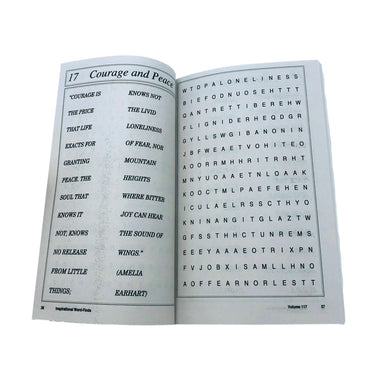 17 Courage and Peace
"COURAGE IS
THE PRICE
THAT LIFE
EXACTS FOR
GRANTING
PEACE. THE
SOUL THAT
KNOWS IT
NOT, KNOWS
NO RELEASE
FROM LITTLE
THINGS;
KNOWS NOT
THE LIVID
LONELINESS
OF FEAR, NOR
MOUNTAIN
HEIGHTS
WHERE BITTER
JOY CAN HEAR
THE SOUND OF
WINGS."
(AMELIA
EARHART)
36 Inspirational Word-Finds
W T D P A L O N E L I N E S S
B I E F O D N U O S E H T T T
Q A N T R E T T I B E R E H W
F L I G N I D E R H E Q D G R
G Y L L S W G I B A N O N I N
J B F W E A E T V O H I T E O
A O O R R M H H R I T R R H T
M N Y U O A A E T N L O A A K
K O O C T M L P A E F E H E N
I C U L A E L R S S C T H Y O
K N I N A N G I T G L A Z T W
G F S T H H C T U N R E M S
E E E Y A A A E O T R I X P N
F V J O B X I S A M L L H N O
A O F F E A R N O R L E S T T
Volume 117 37